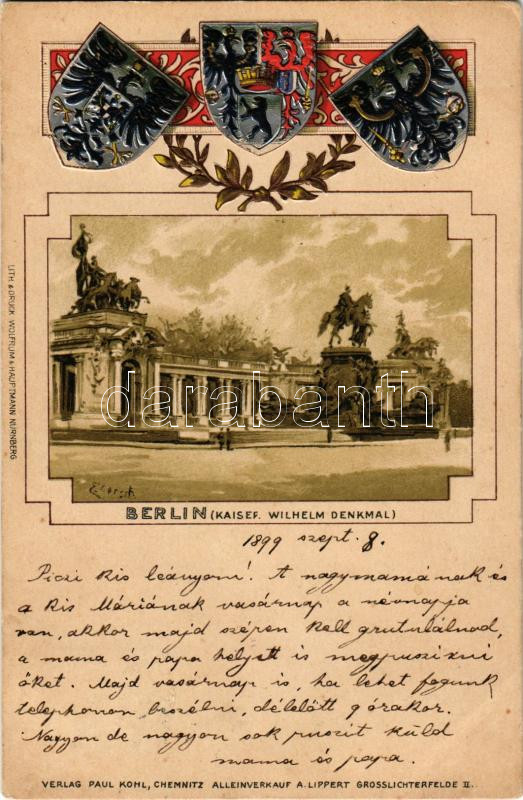 darabanth
LITH. & DRUCK WOLFRUM & HAUPTMANN NÜRNBERG
BERLIN (KAISER WILHELM DENKMAL)
1899 szept. 8.
Piczi kis leányom! A nagymamának és
a kis Máriának vasárnap a névnapja
van, akkor majd szépen kell gratulálnod,
a mama és papa helyett is megpuszizni
őket. Majd vasárnap is, ha lehet fogunk
telephonon beszélni, délelőtt 9 órakor.
Nagyon de nagyon sok puszit küld
mama és papa.
VERLAG PAUL KOHL, CHEMNITZ ALLEINVERKAUF A. LIPPERT GROSSLICHTERFELDE II.